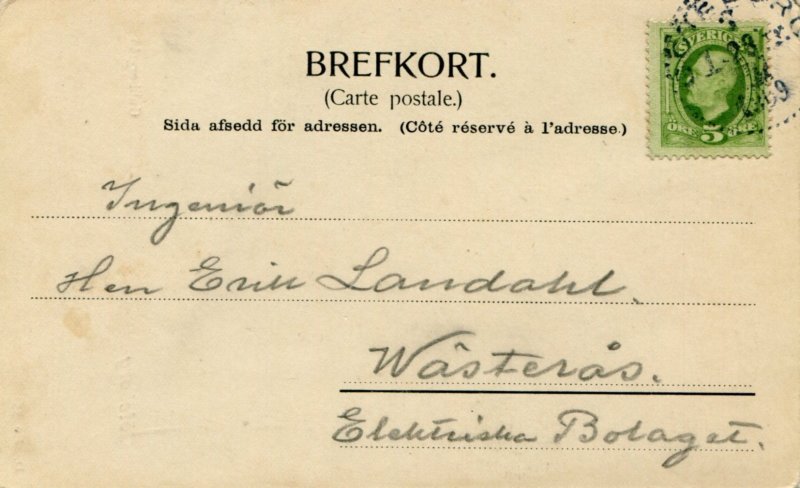 BREFKORT.
(Carte postale.)
Sida afsedd för adressen. (Côté réservé à l'adresse.)
SVERIGE
ÖRE 5 ÖRE
Ingeniör
Herr Erik Landahl.
Wästerås.
Elektriska Bolaget.